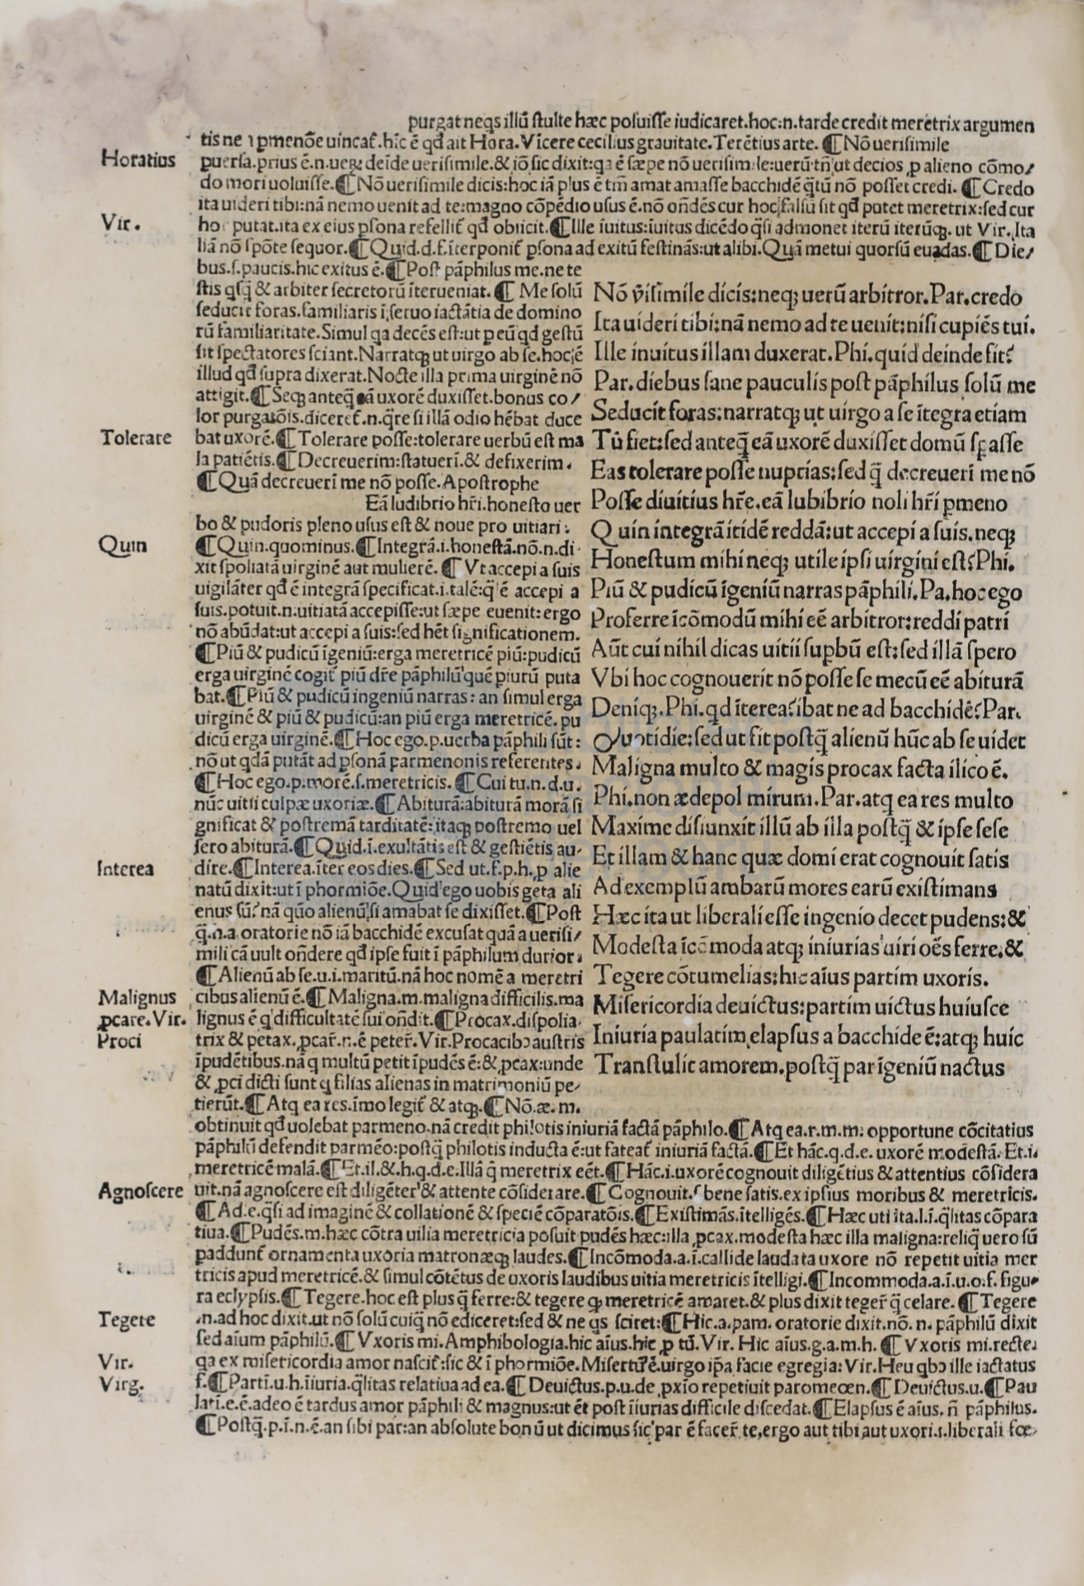 purgat neqs illū stulte hæc posuisse iudicaret.hoc:n.tarde credit meretrix argumen
tis ne
Horatius
puersa.prius ē.n.ueq; deīde uerisimile.& iō,sic dixit:qa ē sæpe nō uerisimile:uerū tñ ut decios ꝓ alieno cōmo/
do mori uoluisse.¶Nō uerisimile dicis:hoc iā plus ē tm̄ amat amasse bacchidē q̄tū nō posset credi.¶Credo
ita uideri tibi:nā nemo uenit ad te:magno cōpēdio usus ē.nō oñdēs cur hoc falsū sit qd̄ putet meretrix:sed cur
Vir.
putat.ita ex eius psona refellit qd̄ obiicit.¶Ille iuitus:iuitus dicēdo q̄si admonet iterū iterūq;.ut Vir.Ita
liā nō spōte sequor.¶Quid.d.f.īterponit psona ad exitū festinās:ut alibi.Quā metui quorsū euadas.¶Die/
bus.s.paucis.hic exitus ē.¶Post pāphilus me.ne te
stis qsq̄ & arbiter secretorū īterueniat.¶Me solū
seducit foras.familiaris ī seruo iactātia de domino
rū familiaritate.Simul qa decēs est:ut p eū qd gestū
sit spectatores sciant.Narratq; ut uirgo ab se.hoc ē
illud qd̄ supra dixerat.Nocte illa prima uirginē nō
attigit.¶Seq; anteq̄ eā uxorē duxisset.bonus co/
lor purgatōis.diceret.n.q̄re si illā odio hēbat duce
Tolerare
bat uxorē.¶Tolerare posse:tolerare uerbū est ma
la patiētis.¶Decreuerim:statuerī.& defixerim.
¶Quā decreuerī me nō posse.Apostrophe
Eā ludibrio hr̄i.honesto uer
bo & pudoris pleno usus est & noue pro uitiari.
Quin
¶Quin.quominus.¶Integrā.i.honestā.nō.n.di
xit spoliatā uirginē aut mulierē.¶Vt accepi a suis
uigilāter qd̄ ē integrā specificat.i.talē:q̄ ē accepi a
suis.potuit.n.uitiatā accepisse:ut sæpe euenit:ergo
nō abūdat:ut accepi a suis:sed hēt significationem.
¶Piū & pudicū īgeniū:erga meretricē piū:pudicū
erga uirginē cogit piū dr̄e pāphilū quē piurū puta
bat.¶Piū & pudicū ingeniū narras: an simul erga
uirginē & piū & pudicū:an piū erga meretricē.pu
dicū erga uirginē.¶Hoc ego.p.uerba pāphili sūt:
nō ut qdā putāt ad psonā parmenonis referentes.
¶Hoc ego.p.morē.s.meretricis.¶Cui tu.n.d.u.
nūc uitii culpæ uxoriæ.¶Abiturā:abiturā morā si
gnificat & postremā tarditatē:itaq; postremo uel
sero abiturā.¶Quid.i.exultātis est & gestiētis au
Interea
dire.¶Interea.īter eos dies.¶Sed ut.f.p.h.ꝓ alie
natū dixit:ut ī phormiōe.Quid ego uobis geta ali
enus sū?nā quō alienū si amabat se dixisset.¶Post
q̄.n.a.oratorie nō iā bacchidē excusat quā a uerisi/
mili cā uult oñdere qd̄ ipse fuit ī pāphilum durior.
¶Alienū ab se.u.i.maritū.nā hoc nomē a meretri
Malignus
cibus alienū ē.¶Maligna.m.maligna difficilis.ma
ꝓcare.Vir.
lignus ē q difficultatē sui oñdit.¶Procax.dispolia
Proci
trix & petax.ꝓcar̄.n.ē peter̄.Vir.Procacibꝰ austris
īpudētibus.nā q multū petit īpudēs ē:& ꝓcax:unde
& ꝓci dicti sunt q filias alienas in matrimoniū pe/
tierūt.¶Atq ea res.īmo legit & atq;.¶Nō.æ.m.
Nō v̄isimile dicis:neq; uerū arbitror.Par.credo
Ita uideri tibi:nā nemo ad te uenit:nisi cupiēs tui.
Ille inuitus illam duxerat.Phi.quid deinde fit?
Par.diebus sane pauculis post pāphilus solū me
Seducit foras:narratq; ut uirgo a se ītegra etiam
Tū fiet:sed anteq̄ eā uxorē duxisset domū spasse
Eas tolerare posse nuptias:sed q̄ decreuerī me nō
Posse diuitius hr̄e.eā lubibrio noli hr̄i pmeno
Quin integrā itidē reddā:ut accepi a suis.neq;
Honestum mihi neq; utile ipsi uirgini est?Phi.
Piū & pudicū īgeniū narras pāphili.Pa.hoc ego
Proferre īcōmodū mihi eē arbitror:reddi patri
Aūt cui nihil dicas uitii supbū est:sed illā spero
Vbi hoc cognouerit nō posse se mecū eē abiturā
Deniq;.Phi.qd īterea?ibat ne ad bacchidē?Par.
Quotidie:sed ut fit postq̄ alienū hūc ab se uidet
Maligna multo & magis procax facta ilico ē.
Phi.non ædepol mirum.Par.atq ea res multo
Maxime disiunxit illū ab illa postq̄ & ipse sese
Et illam & hanc quæ domi erat cognouit satis
Ad exemplū ambarū mores earū existimans
Hæc ita ut liberali esse ingenio decet pudens:&
Modesta īcōmoda atq; iniurias uiri oēs ferre.&
Tegere cōtumelias:hic aīus partim uxoris.
Misericordia deuictus:partim uictus huiusce
Iniuria paulatim elapsus a bacchide ē:atq; huic
Transtulit amorem.postq̄ par īgeniū nactus
obtinuit qd̄ uolebat parmeno.nā credit philotis iniuriā factā pāphilo.¶Atq ea.r.m.m: opportune cōcitatius
pāphilū defendit parmēo:postq̄ philotis inducta ē:ut fateat iniuriā factā.¶Et hāc.q.d.e.uxorē modestā.Et.i.
meretricē malā.¶Et.il.&.h.q.d.e.Illā q̄ meretrix eēt.¶Hāc.i.uxorē cognouit diligētius & attentius cōsidera
Agnoscere
uit.nā agnoscere est diligēter & attente cōsiderare.¶Cognouit.bene satis.ex ipsius moribus & meretricis.
¶Ad.e.q̄si ad imaginē & collationē & speciē cōparatōis.¶Existimās.ītelligēs.¶Hæc uti ita.l.ī.q̄litas cōpara
tiua.¶Pudēs.m.hæc cōtra uilia meretricia posuit pudēs hæc:illa ꝓcax.modesta hæc illa maligna:reliq̄ uero sū
paddunt ornamenta uxoria matronæq; laudes.¶Incōmoda.a.ī.callide laudata uxore nō repetit uitia mer
tricis apud meretricē.& simul cōtētus de uxoris laudibus uitia meretricis ītelligi.¶Incommoda.a.ī.u.o.f.figu
ra eclypsis.¶Tegere.hoc est plus q̄ ferre:& tegere q; meretricē amaret.& plus dixit teger̄ q̄ celare.¶Tegere
Tegere
.n.ad hoc dixit.ut nō solū cuiq nō ediceret:sed & ne qs sciret:¶Hic.a.pam.oratorie dixit.nō.n.pāphilū dixit
sed aīum pāphilū.¶Vxoris mi.Amphibologia.hic aīus.hic ꝓ tū.Vir.Hic aīus.g.a.m.h.¶Vxoris mi.recte.
Vir.
qa ex misericordia amor nascit:sic & ī phormiōe.Misertū ē.uirgo ip̄a facie egregia:Vir.Heu qbꝰ ille iactatus
Virg.
f.¶Parti.u.h.īiuria.q̄litas relatiua ad ea.¶Deuictus.p.u.de ꝓxīo repetiuit paromeœn.¶Deuictus.u.¶Pau
lati.e.ē.adeo ē tardus amor pāphili & magnus:ut ēt post īiurias difficile discedat.¶Elapsus ē aīus.ñ pāphilus.
¶Postq̄.p.ī.n.ē.an sibi par:an absolute bonū ut dicimus sic par ē facer̄.te,ergo aut tibi aut uxori.i.liberali